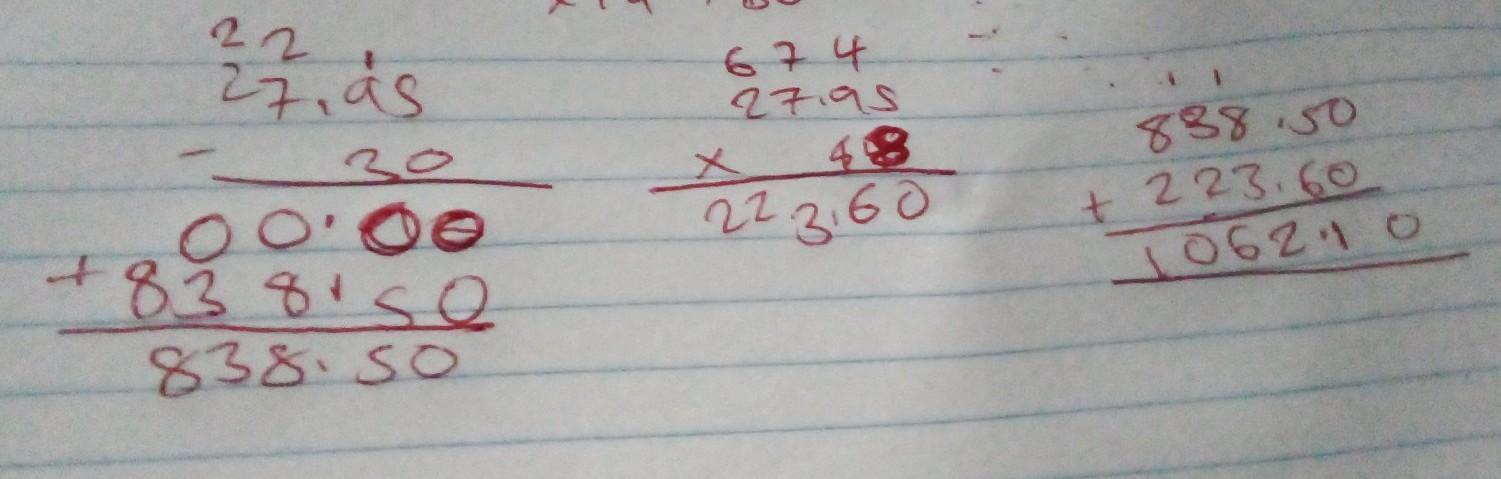 22 1
27.95
- 30
00.00
+ 838.50
838.50
674
27.95
x 8
223.60
1 1
838.50
+ 223.60
1062.10